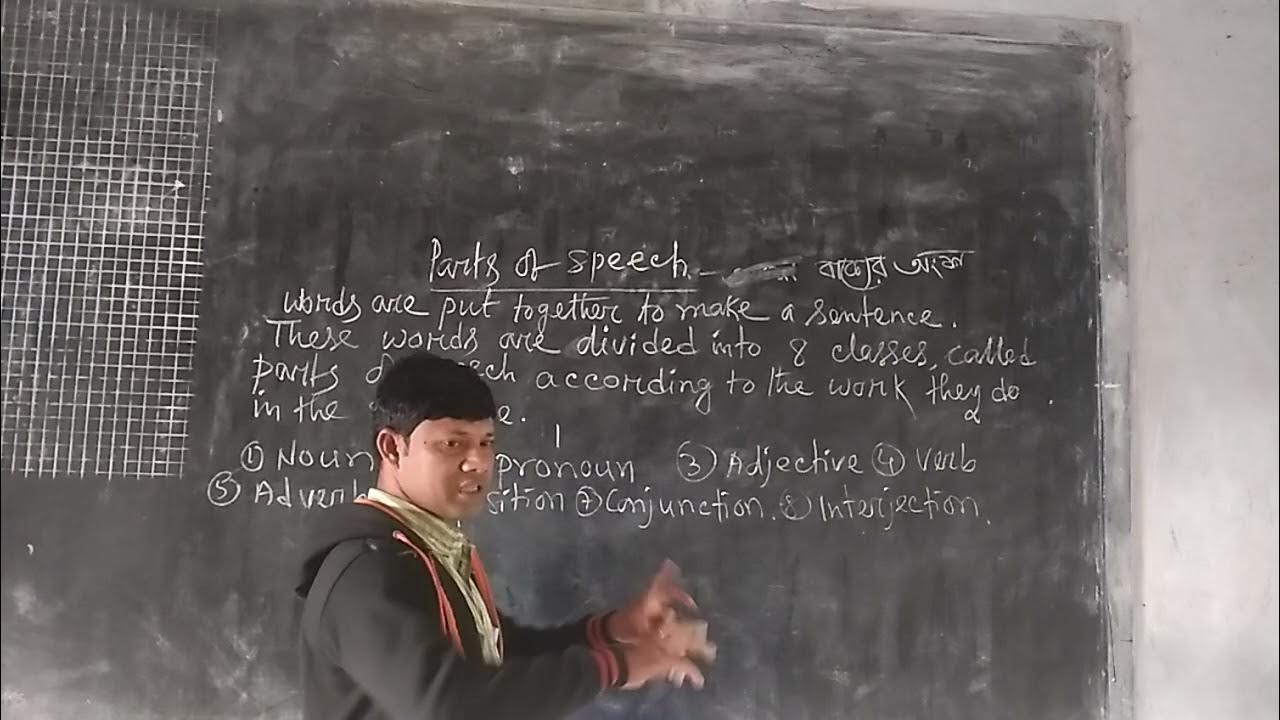 Parts of speech - বাক্যের অংশ
words are put together to make a sentence.
These words are divided into 8 classes, called
parts according to the work they do.
in the
① Noun pronoun ③ Adjective ④ Verb
⑤ Adverb ⑦ Conjunction. ⑧ Interjection.